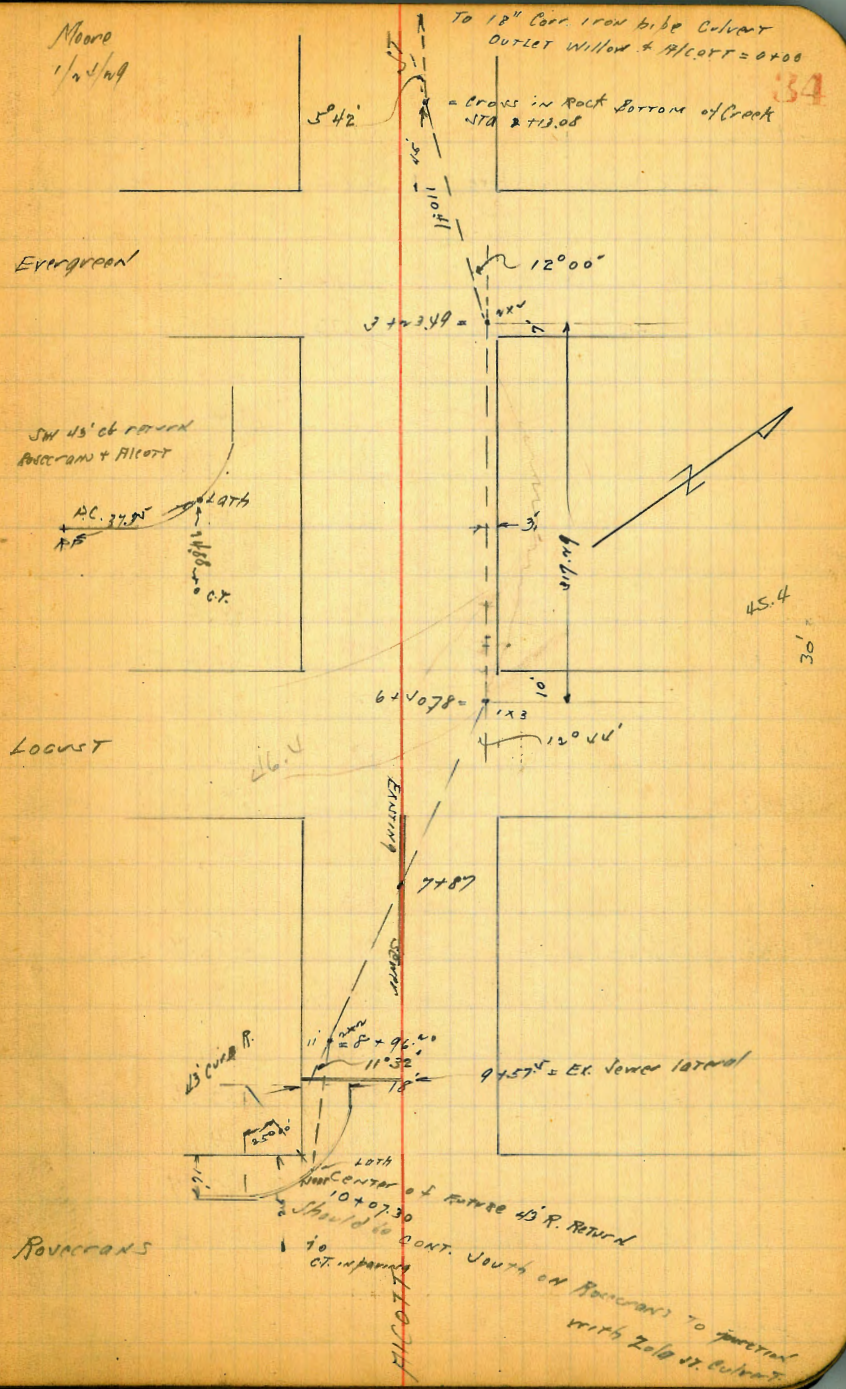 Moore
To 18" Corr. Iron pipe Culvert
Outlet Willow & Alcott = 0+00
34
5° 42'
= Cross in Rock Bottom of Creek
Sta 2+13.08
110.41
Evergreen
12° 00'
3 + 23.49 =
2x2
SW 43' cb return
Rosecrans & Alcott
Lath
B.C. 37.95
C.T.
3'
45.4
30'
10'
1x3
12° 44'
Locust
46.4
Existing
7+87
Sewer
11'
2x2
= 8 + 96.20
11° 32'
43' Curb R.
18'
9+57.5 = Ex. Sewer lateral
Lath
Center of Future 43' R. Return
10+07.30
Should be Cont. South on Rosecrans to junction
with Zola St. Culvert
Rosecrans
to
CT. in paving
Alcott